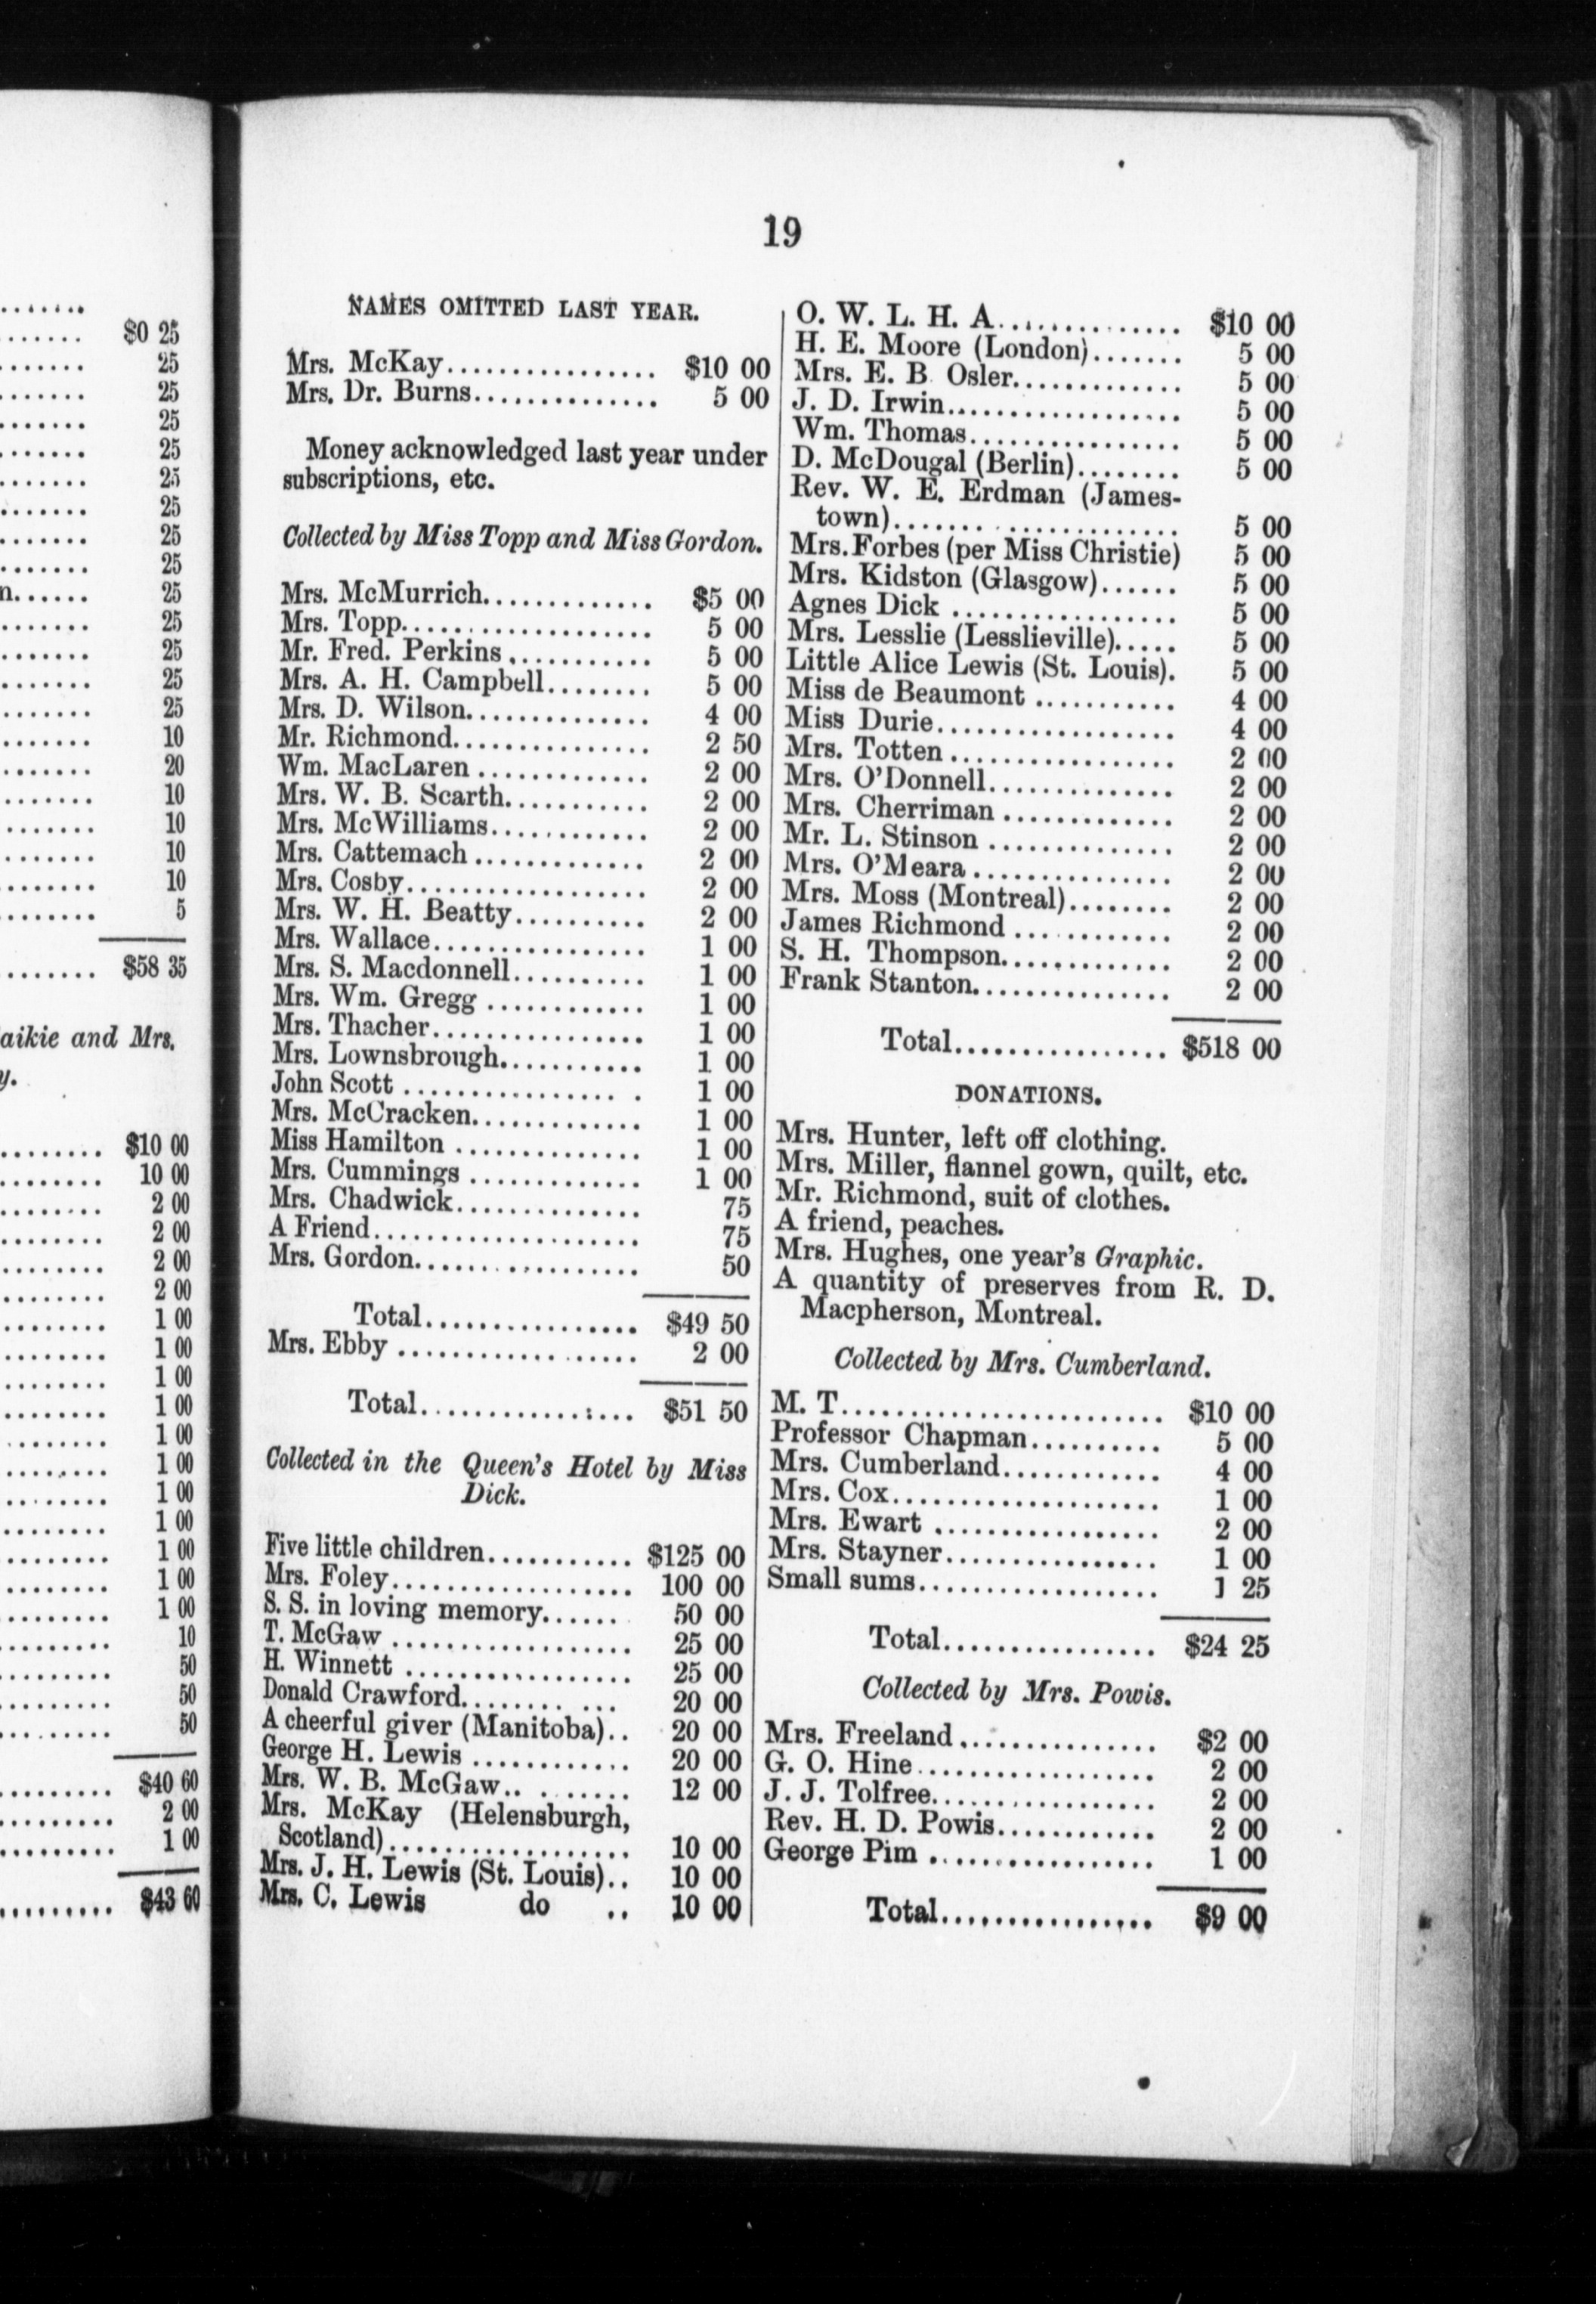 $0 25
25
25
25
25
25
25
25
25
n...... 25
25
25
25
25
10
20
10
10
10
10
5
$58 35
aikie and Mrs.
y.
$10 00
10 00
2 00
2 00
2 00
2 00
1 00
1 00
1 00
1 00
1 00
1 00
1 00
1 00
1 00
1 00
1 00
10
50
50
50
$40 60
2 00
1 00
$43 60
19
NAMES OMITTED LAST YEAR.
Mrs. McKay................ $10 00
Mrs. Dr. Burns.............. 5 00
Money acknowledged last year under
subscriptions, etc.
Collected by Miss Topp and Miss Gordon.
Mrs. McMurrich............. $5 00
Mrs. Topp................... 5 00
Mr. Fred. Perkins ........... 5 00
Mrs. A. H. Campbell........ 5 00
Mrs. D. Wilson.............. 4 00
Mr. Richmond............... 2 50
Wm. MacLaren ............. 2 00
Mrs. W. B. Scarth........... 2 00
Mrs. McWilliams............ 2 00
Mrs. Cattemach ............. 2 00
Mrs. Cosby.................. 2 00
Mrs. W. H. Beatty.......... 2 00
Mrs. Wallace................ 1 00
Mrs. S. Macdonnell.......... 1 00
Mrs. Wm. Gregg ............ 1 00
Mrs. Thacher................ 1 00
Mrs. Lownsbrough........... 1 00
John Scott ................. 1 00
Mrs. McCracken............. 1 00
Miss Hamilton .............. 1 00
Mrs. Cummings ............. 1 00
Mrs. Chadwick.............. 75
A Friend.................... 75
Mrs. Gordon................. 50
Total................ $49 50
Mrs. Ebby .................. 2 00
Total................ $51 50
Collected in the Queen's Hotel by Miss
Dick.
Five little children........... $125 00
Mrs. Foley.................. 100 00
S. S. in loving memory...... 50 00
T. McGaw .................. 25 00
H. Winnett ................. 25 00
Donald Crawford........ ... 20 00
A cheerful giver (Manitoba).. 20 00
George H. Lewis ............ 20 00
Mrs. W. B. McGaw.. ....... 12 00
Mrs. McKay (Helensburgh,
Scotland).................. 10 00
Mrs. J. H. Lewis (St. Louis).. 10 00
Mrs. C. Lewis do .. 10 00
O. W. L. H. A.............. $10 00
H. E. Moore (London)....... 5 00
Mrs. E. B Osler............. 5 00
J. D. Irwin.................. 5 00
Wm. Thomas................ 5 00
D. McDougal (Berlin)........ 5 00
Rev. W. E. Erdman (James-
town)....... ............. 5 00
Mrs. Forbes (per Miss Christie) 5 00
Mrs. Kidston (Glasgow)...... 5 00
Agnes Dick ................. 5 00
Mrs. Lesslie (Lesslieville)..... 5 00
Little Alice Lewis (St. Louis). 5 00
Miss de Beaumont ........... 4 00
Miss Durie.................. 4 00
Mrs. Totten ................. 2 00
Mrs. O'Donnell.............. 2 00
Mrs. Cherriman ............. 2 00
Mr. L. Stinson .............. 2 00
Mrs. O'Meara ............... 2 00
Mrs. Moss (Montreal)........ 2 00
James Richmond ............ 2 00
S. H. Thompson............. 2 00
Frank Stanton............... 2 00
Total................ $518 00
DONATIONS.
Mrs. Hunter, left off clothing.
Mrs. Miller, flannel gown, quilt, etc.
Mr. Richmond, suit of clothes.
A friend, peaches.
Mrs. Hughes, one year's Graphic.
A quantity of preserves from R. D.
Macpherson, Montreal.
Collected by Mrs. Cumberland.
M. T........................ $10 00
Professor Chapman.......... 5 00
Mrs. Cumberland............ 4 00
Mrs. Cox.................... 1 00
Mrs. Ewart ................. 2 00
Mrs. Stayner................ 1 00
Small sums.................. 1 25
Total................ $24 25
Collected by Mrs. Powis.
Mrs. Freeland ............... $2 00
G. O. Hine.................. 2 00
J. J. Tolfree................. 2 00
Rev. H. D. Powis............ 2 00
George Pim ................. 1 00
Total................ $9 00